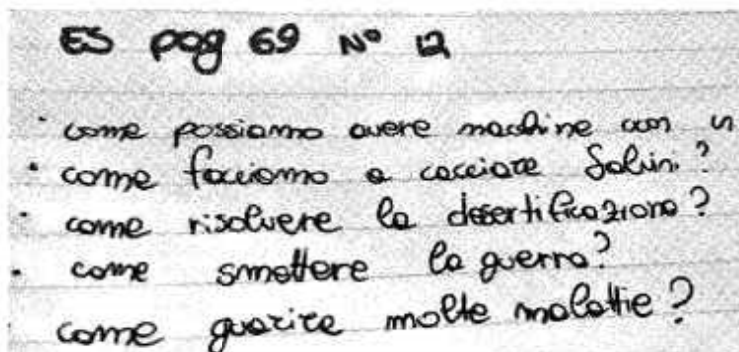 ES pag 69 N° 12
• come possiamo avere macchine con
• come facciamo a cacciare Salvini?
• come risolvere la desertificazione?
• come smettere la guerra?
come guarire molte malattie?